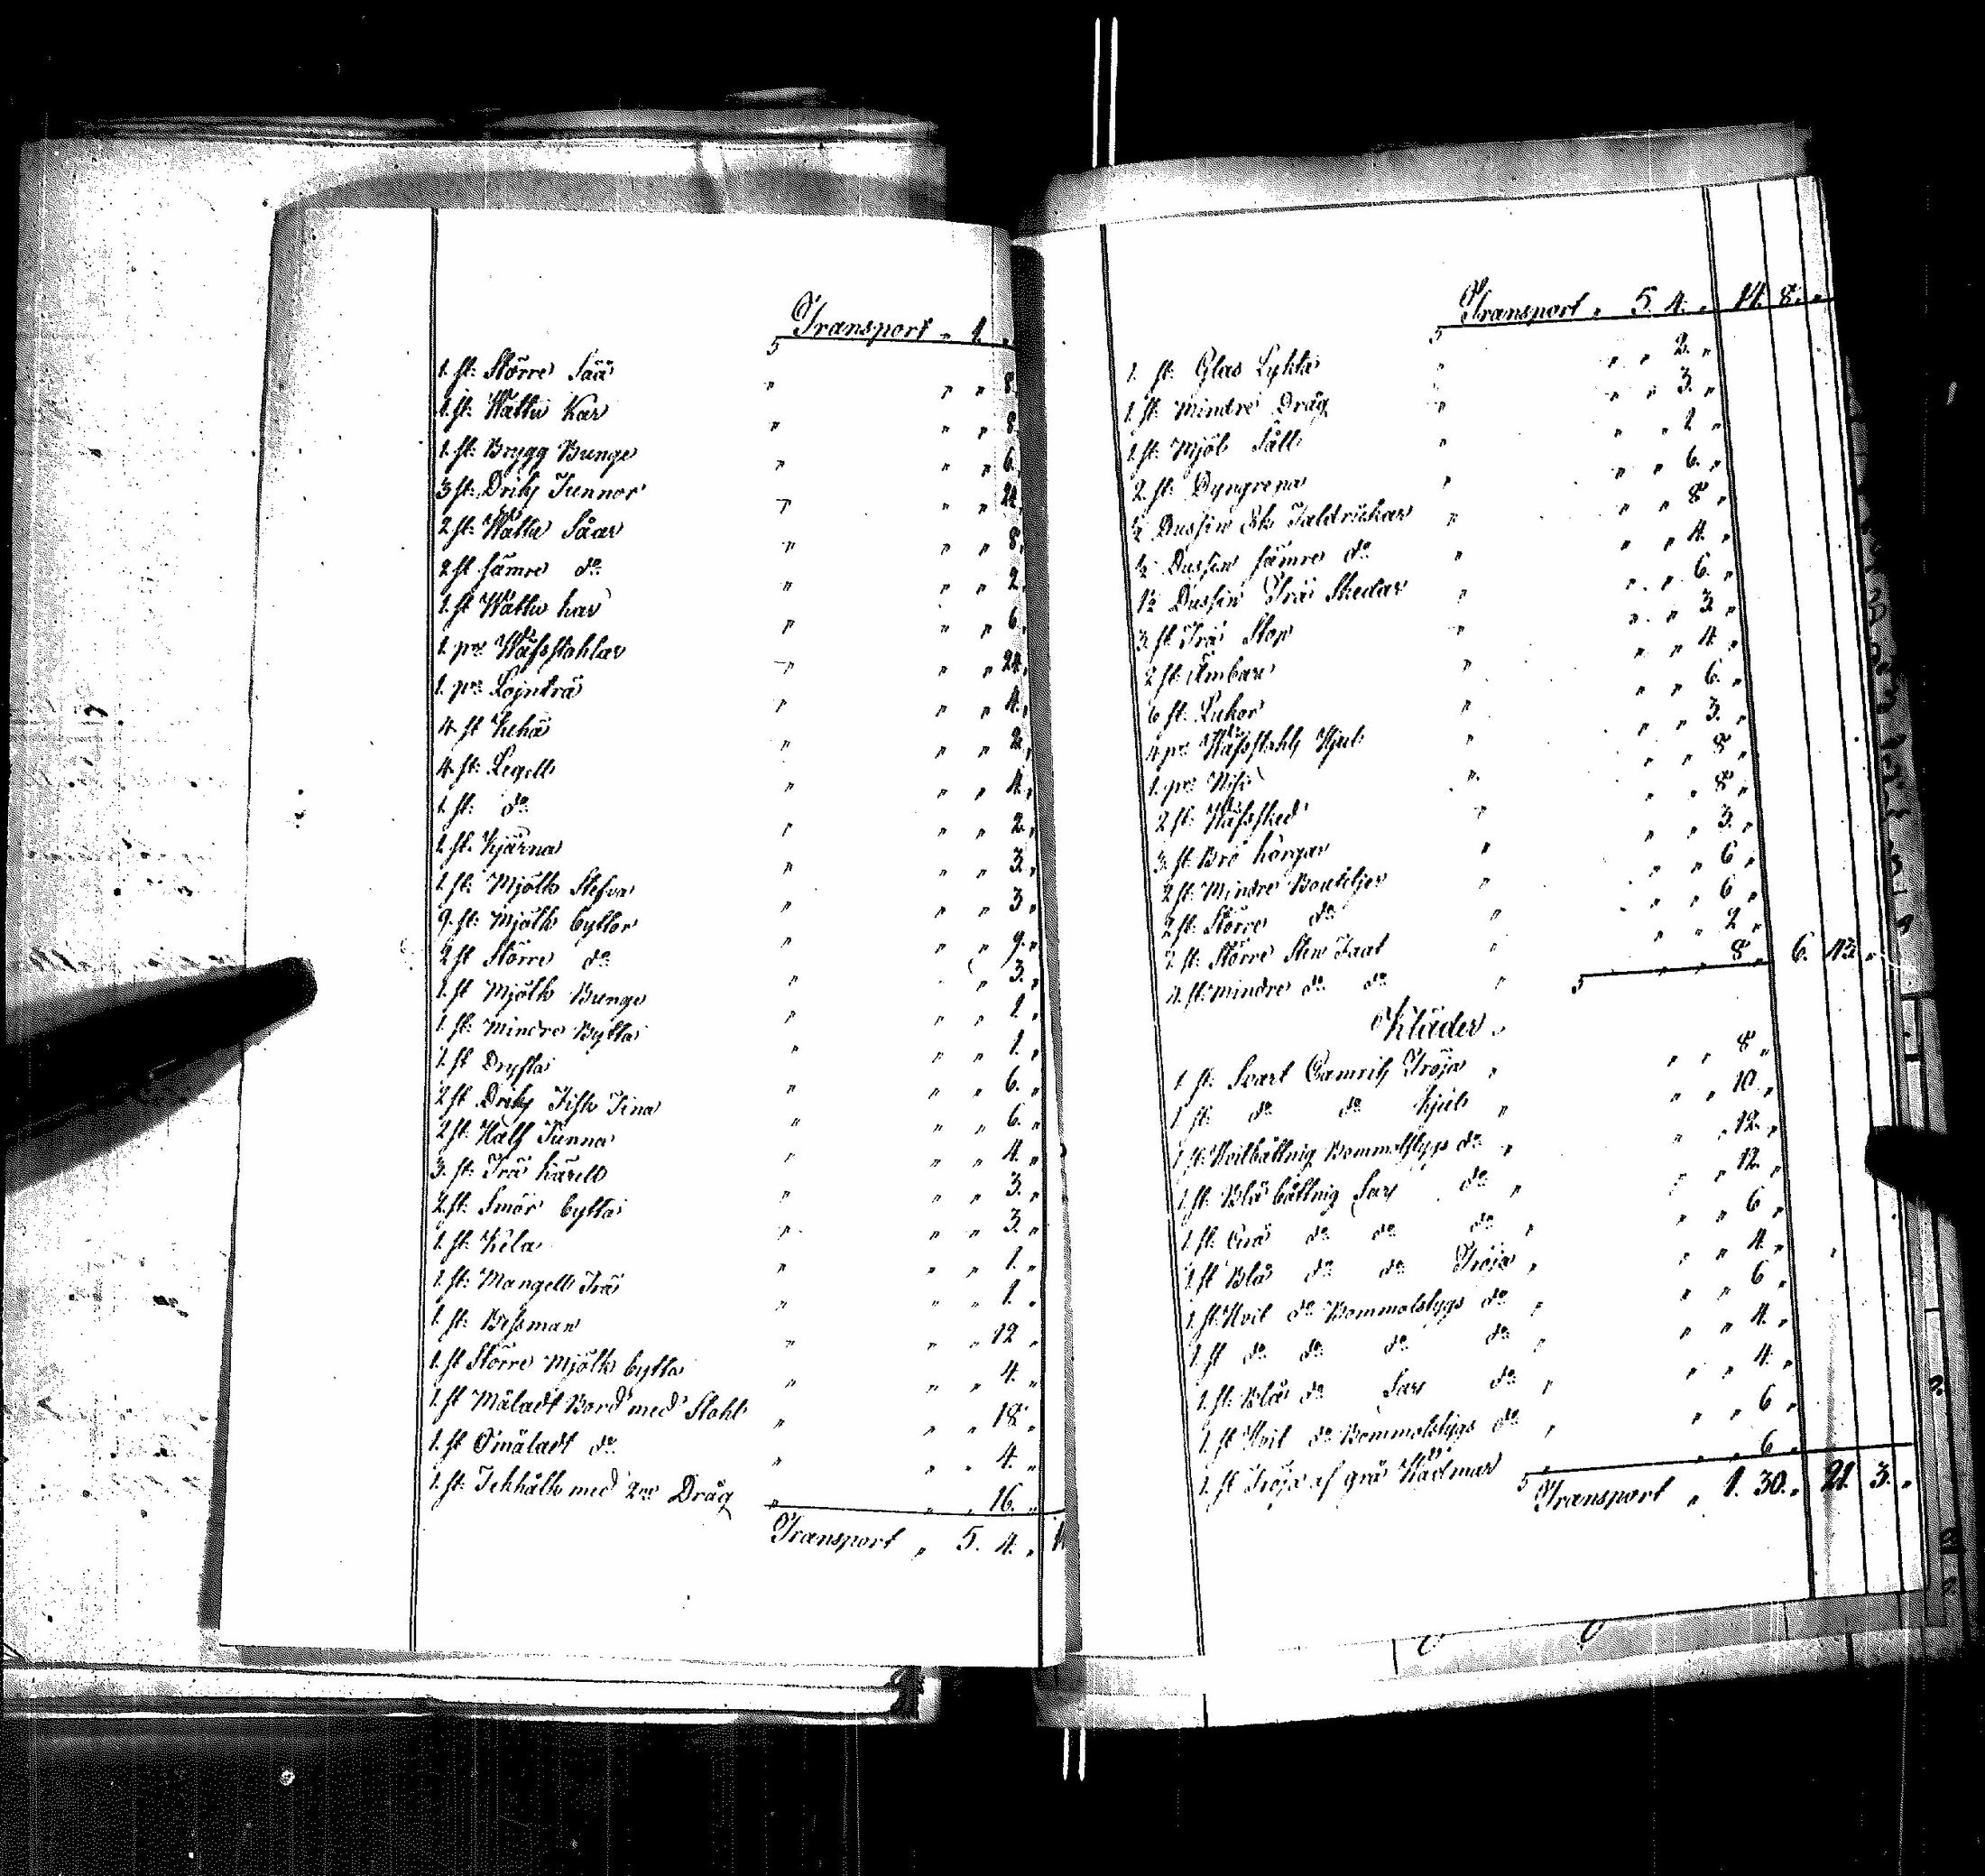 Transport „ 1. „
1. st: Större Såå „ „ „ 8.
1. st: Wattu Kar „ „ „ 8.
1. st: Brygg Bunge „ „ „ 6.
3 st: Driks Tunnor „ „ „ 24.
2 st: Wattu Såar „ „ „ 8.
2 st sämre do „ „ „ 2.
1. st Wattu kar „ „ „ 6.
1. pr: Wäfsstohlar „ „ „ 24.
1. pr: Lojnträ „ „ „ 4.
4 st „ „ „ 2.
4 st: Legell „ „ „ 4.
1. st: do „ „ „ 2.
1. st. Kjärna „ „ „ 3.
1. st: Mjölk Stefva „ „ „ 3.
9. st: Mjölk byttor „ „ „ 9.
2 st Större do „ „ „ 3.
1. st Mjölk Bunge „ „ „ 1.
1. st: Mindre Bytta „ „ „ 1.
1. st Drysta „ „ „ 6.
2 st Driks Fisk Tina „ „ „ 6.
2 st: Half Tunna „ „ „ 4.
3. st: Trä kärill „ „ „ 3.
2 st: Smör bytta „ „ „ 3.
1. st: Kila „ „ „ 1.
1. st: Mangell Trä „ „ „ 1.
1. st: Bissman „ „ „ 12
1. st Större Mjölk bytta „ „ „ 4.
1. st Måladt Bord med Stohl „ „ „ 18.
1. st Omåladt do „ „ „ 4.
1. st: med 2ne Dråg „ „ „ 16.
Transport „ 5. 4. „
Transport „ 5. 4. „ 14. 8. „
1. st: Glas Lykta „ „ „ 2. „
1. st: Mindre Dråg „ „ „ 3. „
1. st: Mjöl Såll „ „ „ 1 „
2. st: Dyngrena „ „ „ 6. „
½ Dussin Taldrickar „ „ „ 8 „
½ Dussin sämre do „ „ „ 4. „
1½ Dussin Trä Skedar „ „ „ 6. „
3. st Trä Stop „ „ „ 3. „
2 st: Ämbare „ „ „ 4. „
6 st: Lukor „ „ „ 6. „
4 pr: Wäfsstohls Hjul „ „ „ 3. „
1. pr: „ „ „ 8 „
2 st: Wäfssked „ „ „ 8 „
3. st: Brö körgar „ „ „ 3. „
2 st: Mindre Bouteljer „ „ „ 6 „
2 st: Större do „ „ „ 6 „
2 st: Större Sten Faat „ „ „ 2 „
4. st: Mindre do do „ „ „ 8 „ 6. 43. „
Kläder „
1 st: Svart Camrits Tröja „ „ „ 8 „
1 st: do do kjul „ „ „ 10. „
1 st: Hvitbåttnig Bommolstygs do „ „ „ 12. „
1. st: Blå båttnig Sars do „ „ „ 12. „
1. st: Grå do do do „ „ „ 6 „
1. st Blå do do Tröja „ „ „ 4. „
1. st: Hvit do Bommolstygs do „ „ „ 6 „
1. st do do do do „ „ „ 4. „
1. st: Blå do Sars do „ „ „ 4. „
1. st Hvit do Bommolstygs do „ „ „ 6 „
1. st Tröja af grå Wadmar „ „ „ 6 „
Transport „ 1. 30. „ 21. 3. „